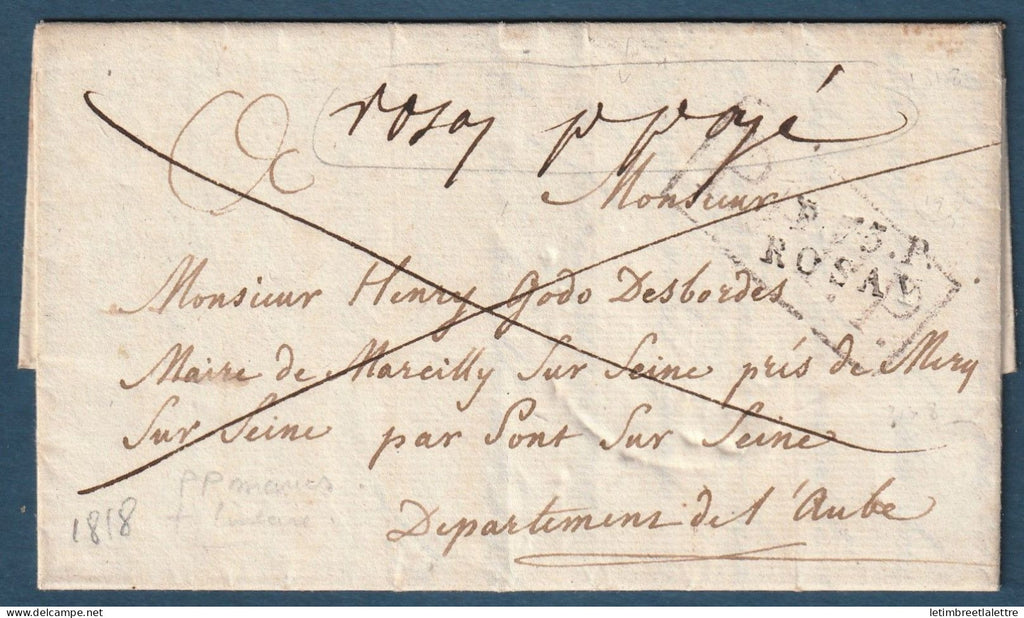 rosay p payé
Monsieur
P.75.P.
ROSAY
Monsieur Henry Godo Desbordes
Maire de Marcilly Sur Seine près de Mery
Sur Seine par Pont Sur Seine
Departement de l'Aube
1818
www.delcampe.net
letimbreetlalettre